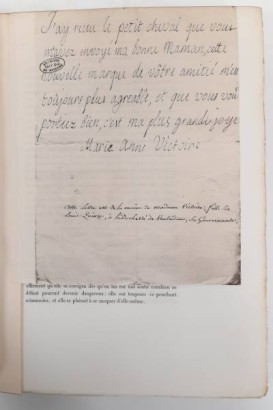 J'ay receu le petit cheval que vous
m'avez envoyé ma bonne Maman, cette
nouvelle marque de vôtre amitié m'est
toujours plus agreable, et que vous vous
portiez bien, c'est ma plus grande joye
Marie Anne Victoire
Cette lettre est de la main de madame Victoire, fille de
Louis Quinze, à la duchesse de Ventadour, sa Gouvernante.
ellement qu'elle se corrigea dès qu'on lui eut fait sentir combien ce
défaut pourrait devenir dangereux ; elle eut toujours ce penchant
à
et elle se plaisait à se moquer d'elle-même.